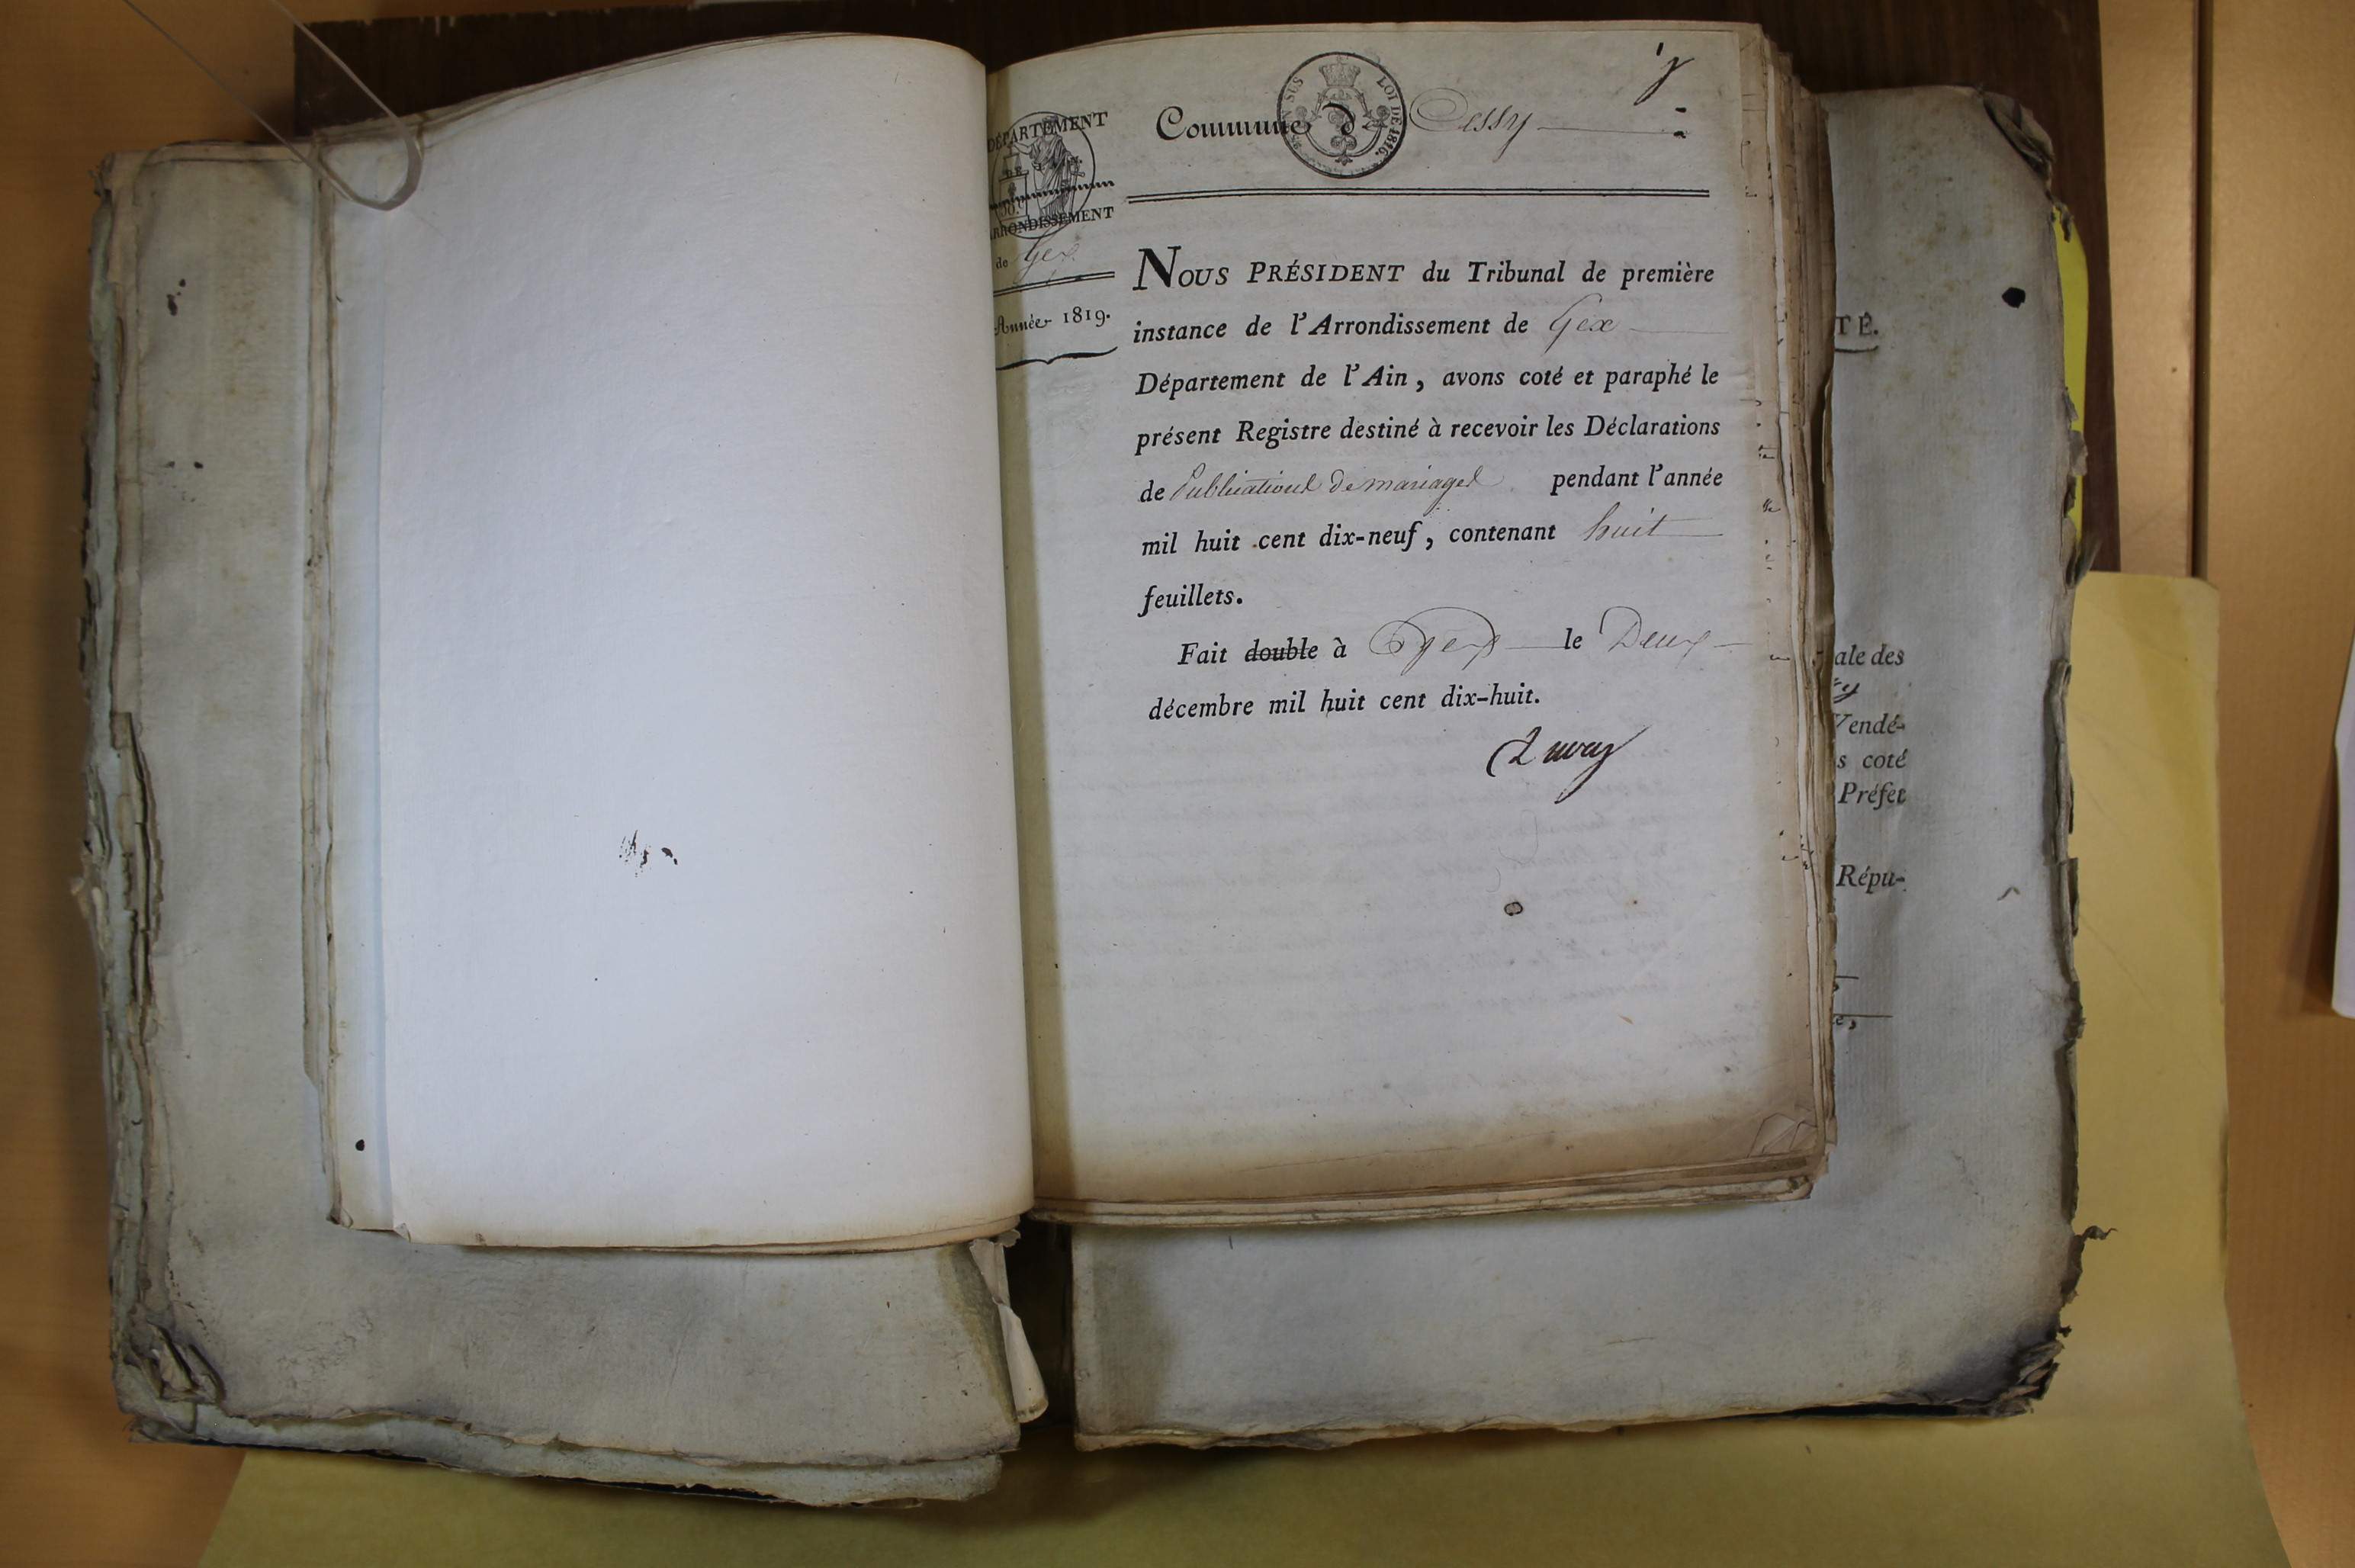 DÉPARTEMENT
DE L'AIN.
ARRONDISSEMENT
de Gex
Année 1819.
Commune de Cessy
EN SUS LOI DE 1816.
NOUS PRÉSIDENT du Tribunal de première
instance de l'Arrondissement de Gex
Département de l'Ain, avons coté et paraphé le
présent Registre destiné à recevoir les Déclarations
de Publications de mariages pendant l'année
mil huit cent dix-neuf, contenant huit
feuillets.
Fait double à Gex le Deux
décembre mil huit cent dix-huit.
TÉ.
ale des
Vendé-
s coté
Préfet
Répu-